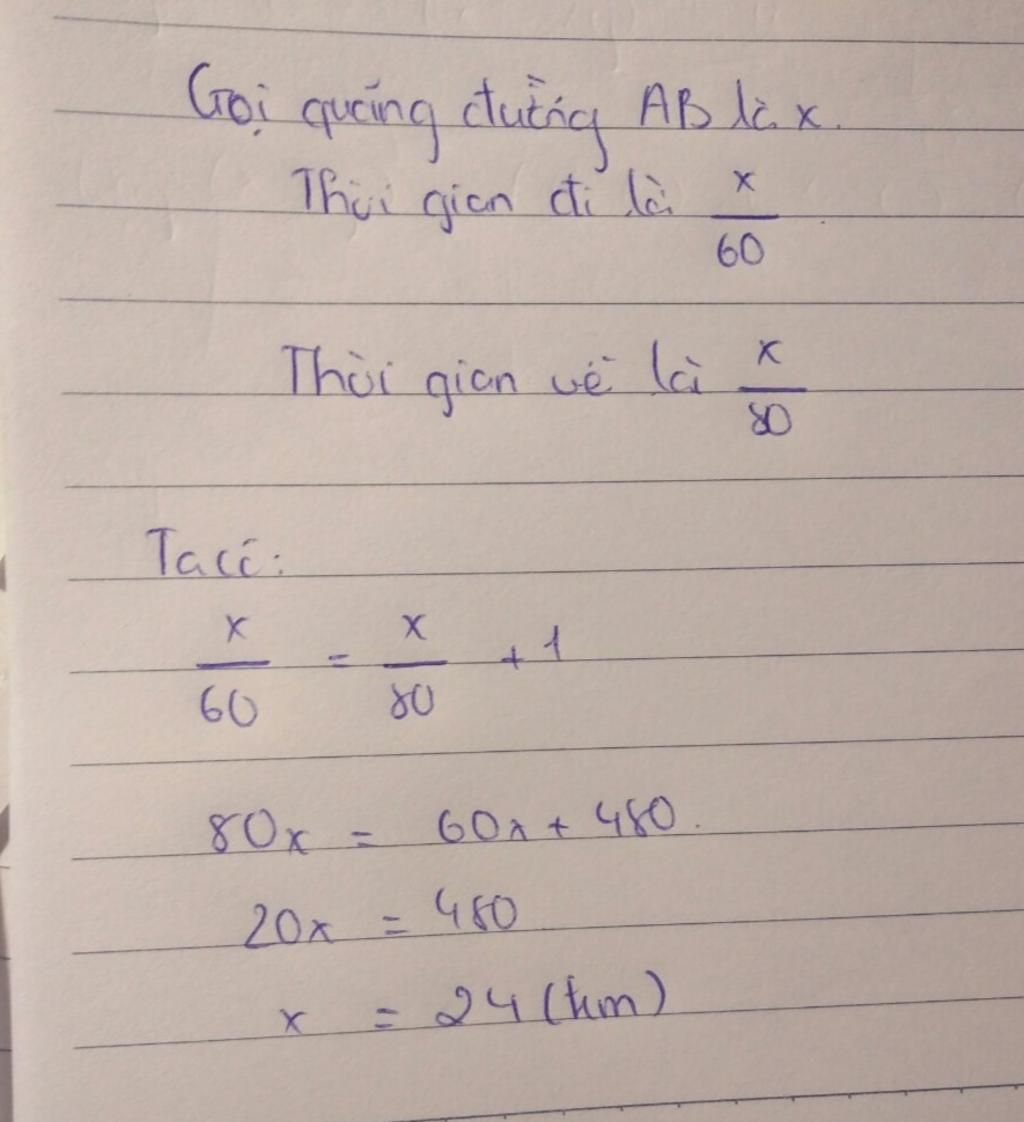 Gọi quãng đường AB là x.
Thời gian đi là x/60
Thời gian về là x/80
Ta có:
x/60 = x/80 + 1
80x = 60x + 480.
20x = 480
x = 24 (km)